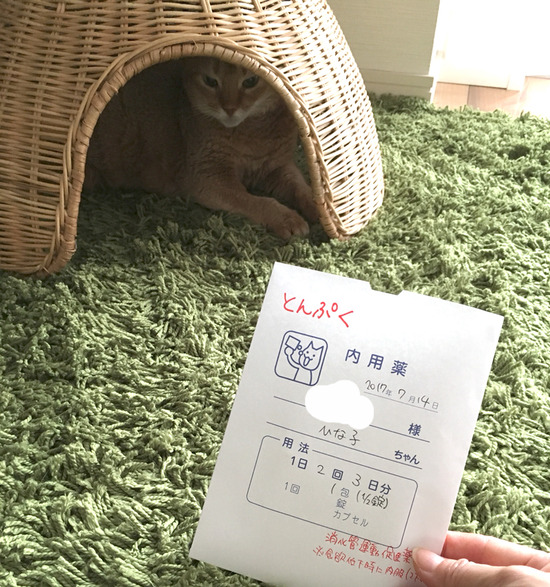 とんぷく
内用薬
2017年7月14日
様
ひな子 ちゃん
用法
1日 2 回 3 日分
1回 1 包 (1/2錠)
錠
カプセル
消化管運動促進薬
※食欲低下時に内服